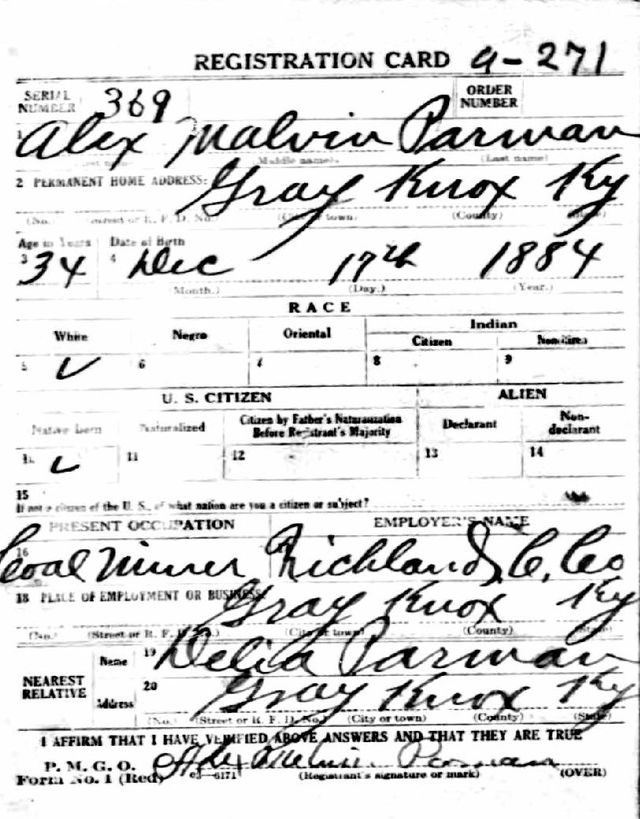 REGISTRATION CARD 9-271
SERIAL NUMBER 369 ORDER NUMBER
1 Alex Malvin Parman
(Middle name) (Last name)
2 PERMANENT HOME ADDRESS:
Gray Knox Ky
(No.) (Street or R. F. D. No.) (City or town) (County) (State)
Age in Years Date of Birth
3 34 4 Dec 17th 1884
(Month.) (Day.) (Year.)
RACE
White Negro Oriental Indian
Citizen Noncitizen
5 ✓ 6 7 8 9
U. S. CITIZEN ALIEN
Native Born Naturalized Citizen by Father's Naturalization Before Registrant's Majority Declarant Non-declarant
10 ✓ 11 12 13 14
15
If not a citizen of the U. S., of what nation are you a citizen or subject?
PRESENT OCCUPATION EMPLOYER'S NAME
16 Coal Miner Richland C. Co
18 PLACE OF EMPLOYMENT OR BUSINESS:
Gray Knox Ky
(No.) (Street or R. F. D. No.) (City or town) (County) (State)
NEAREST RELATIVE Name 19 Delia Parman
Address 20 Gray Knox Ky
(No.) (Street or R. F. D. No.) (City or town) (County) (State)
I AFFIRM THAT I HAVE VERIFIED ABOVE ANSWERS AND THAT THEY ARE TRUE
P. M. G. O.
Form No. 1 (Red) 03-6171 Alex Melvin Parman
(Registrant's signature or mark) (OVER)